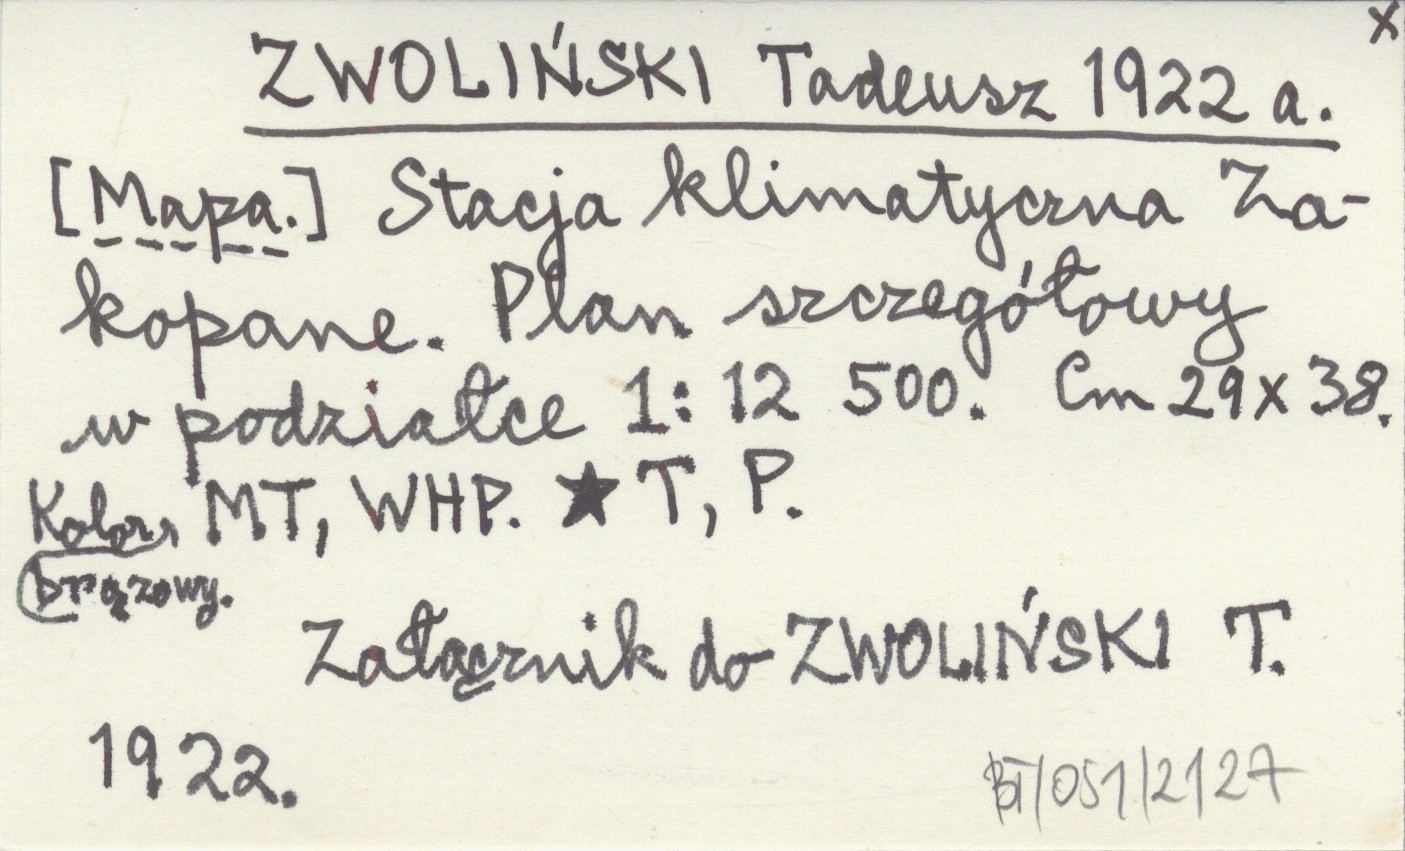 x
ZWOLIŃSKI Tadeusz 1922 a.
[Mapa.] Stacja klimatyczna Za-
kopane. Plan szczegółowy
w podziałce 1:12 500. Cm 29x38.
Kolor, MT, WHP. ★ T, P.
brązowy.
Załącznik do ZWOLIŃSKI T.
1922.
BT/051/2127